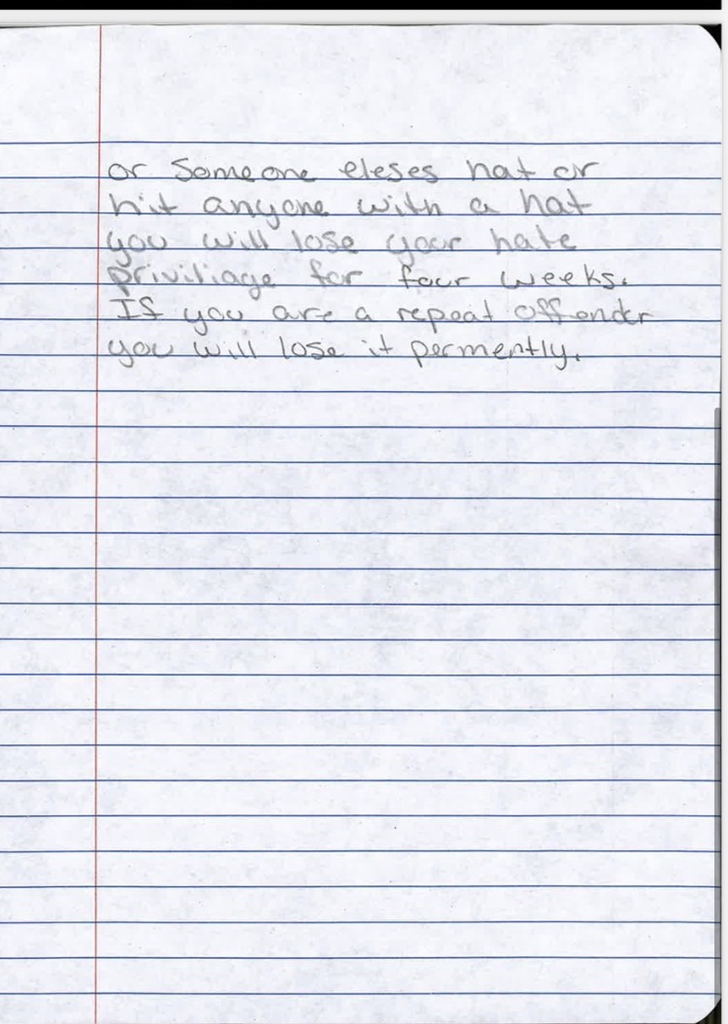 or someone eleses hat or
hit anyone with a hat
you will lose your hate
priviliage for four weeks.
If you are a repeat offender
you will lose it permently.